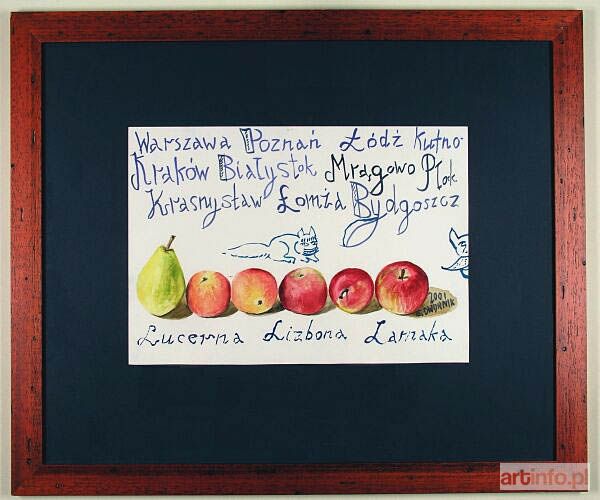 Warszawa Poznań Łódź Kutno-
Kraków Białystok Mrągowo Płock
Krasnystaw Łomża Bydgoszcz
2001
E. DWURNIK
Lucerna Lizbona Larnaka
artinfo.pl